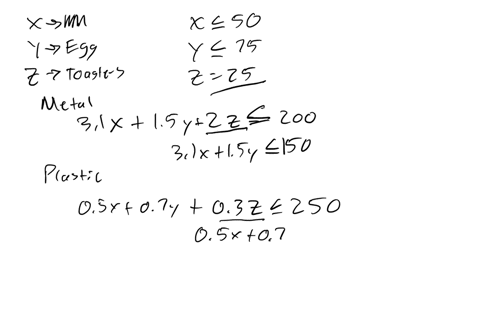 X → MM x ≤ 50
Y → Egg y ≤ 75
Z → Toasters z = 25
Metal
3.1x + 1.5y + 2z ≤ 200
3.1x + 1.5y ≤ 150
Plastic
0.5x + 0.7y + 0.3z ≤ 250
0.5x + 0.7